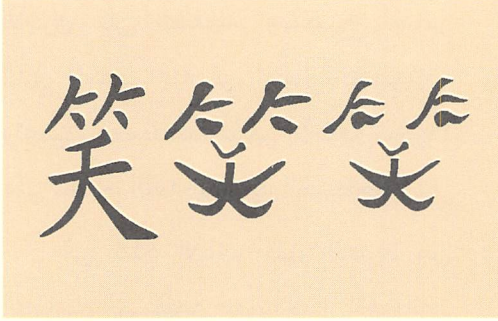 笑笑笑